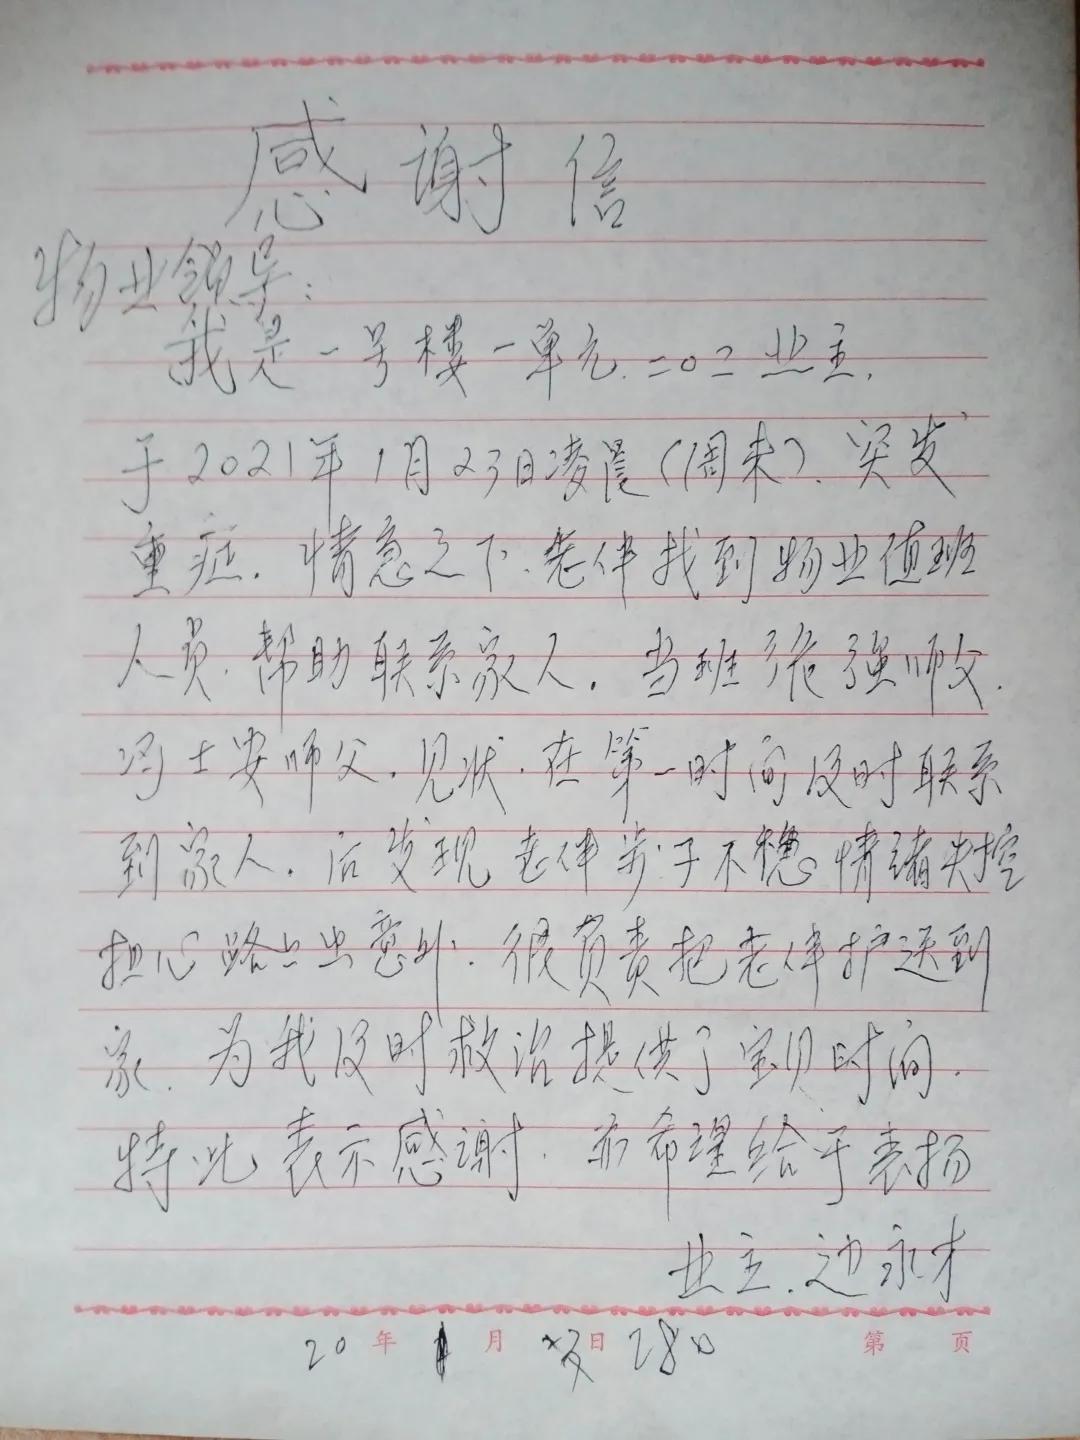 感谢信
物业领导:
我是一号楼一单元.二〇二业主.
于2021年1月23日凌晨(周末).突发
重症.情急之下.老伴找到物业值班
人员.帮助联系家人.当班强师父.
冯士安师父.见状.在第一时间及时联系
到家人.后发现老伴步子不穏。情绪失控
担心路上出意外.很负责把老伴护送到
家.为我及时救治提供了宝贝时间.
特此表示感谢.亦希望给于表扬
业主.边永才
20 年 1 月 日 28日 第 页